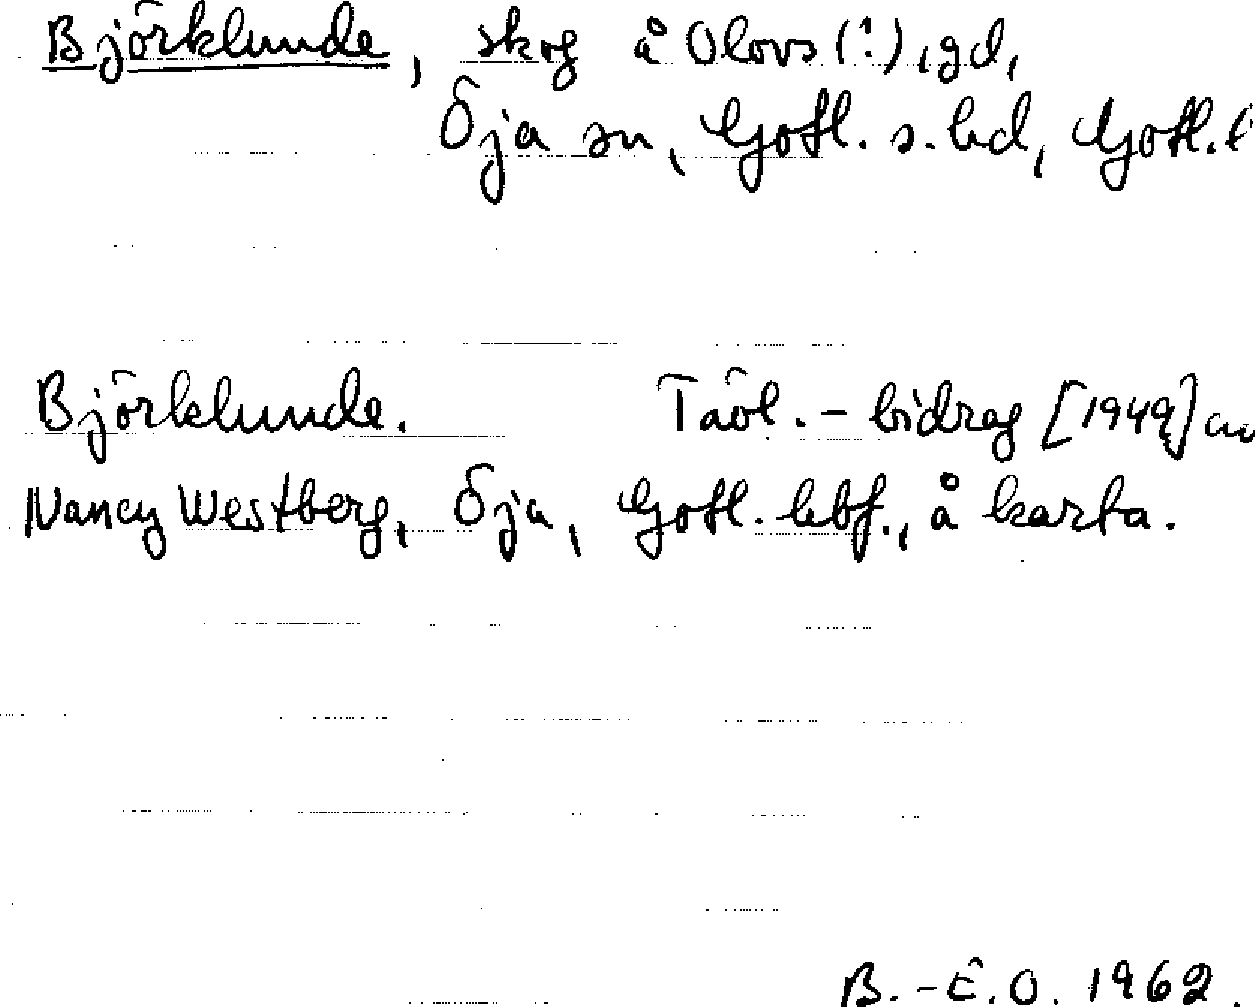 Björklunde, skog å Olovs(?), gd,
Öja sn, Gotl. s. hd, Gotl. l
Björklunde. Tävl.-bidrag [1949] av
Nancy Westberg, Öja, Gotl. hbf., å karta.
B.-E.O. 1962.